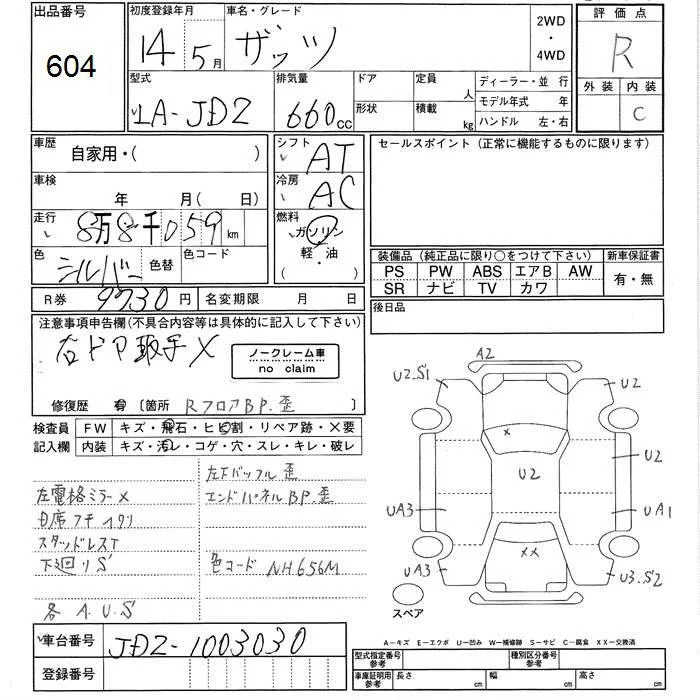 出品番号
604
初度登録年月
14 5月
車名・グレード
ザッツ
2WD
・
4WD
評価点
R
外装 内装
C
型式
LA-JD2
排気量
660cc
ドア
形状
定員 人
積載 kg
ディーラー・並行
モデル年式 年
ハンドル 左・右
車歴
自家用・( )
シフト
AT
セールスポイント (正常に機能するものに限ります)
車検
年 月(日)
冷房
AC
走行
8万8千059km
燃料
ガソリン
軽・油
( )
色
シルバー
色替
色コード
装備品 (純正品に限り○をつけて下さい)
新車保証書
PS PW ABS エアB AW
SR ナビ TV カワ
有・無
R券
9730円
名変期限 月 日
後日品
注意事項申告欄(不具合内容等は具体的に記入して下さい)
右ドア取手X
ノークレーム車
no claim
修復歴 有 〔箇所 RフロアBP.歪 〕
検査員
記入欄
FW キズ・飛石・ヒビ割・リペア跡・X要
内装 キズ・汚レ・コゲ・穴・スレ・キレ・破レ
左下バッフル歪
左電格ミラーX
エンドパネルBP.歪
スタッドレスT
下廻りS'
色コード NH656M
各 A.U.S'
A2
U2.S'1
U2
X
U2
U2
UA3
UA1
XX
UA3
U3.S'2
スペア
車台番号
JD2-1003030
登録番号
A−キズ E−エクボ U−凹み W−補修跡 S−サビ C−腐食 XX−交換済
型式指定番号
参考
種別区分番号
参考
車庫証明用
参考
長さ cm
幅 cm
高さ cm